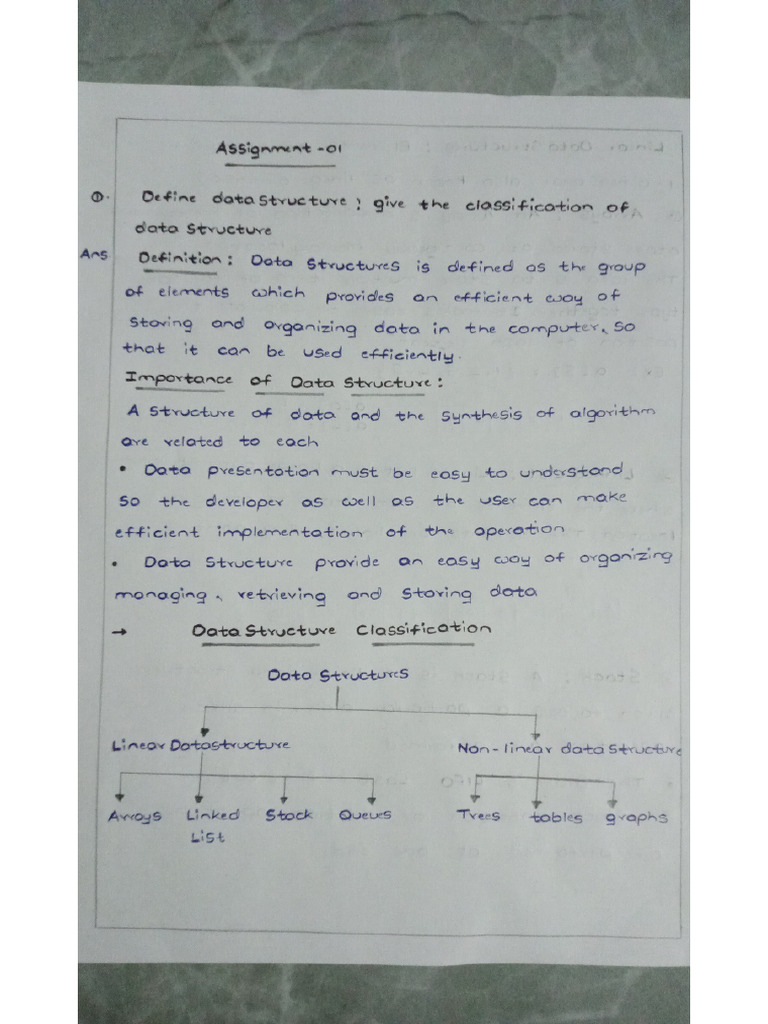 Assignment -01
①. Define data structure; give the classification of
data structure
Ans Definition: Data structures is defined as the group
of elements which provides an efficient way of
storing and organizing data in the computer, so
that it can be used efficiently.
Importance of Data Structure:
A structure of data and the synthesis of algorithm
are related to each
• Data presentation must be easy to understand,
so the developer as well as the user can make
efficient implementation of the operation
• Data structure provide an easy way of organizing
managing, retrieving and storing data
→ Data Structure Classification
Data Structures
Linear Datastructure Non-linear data structure
Arrays Linked Stack Queues Trees tables graphs
List